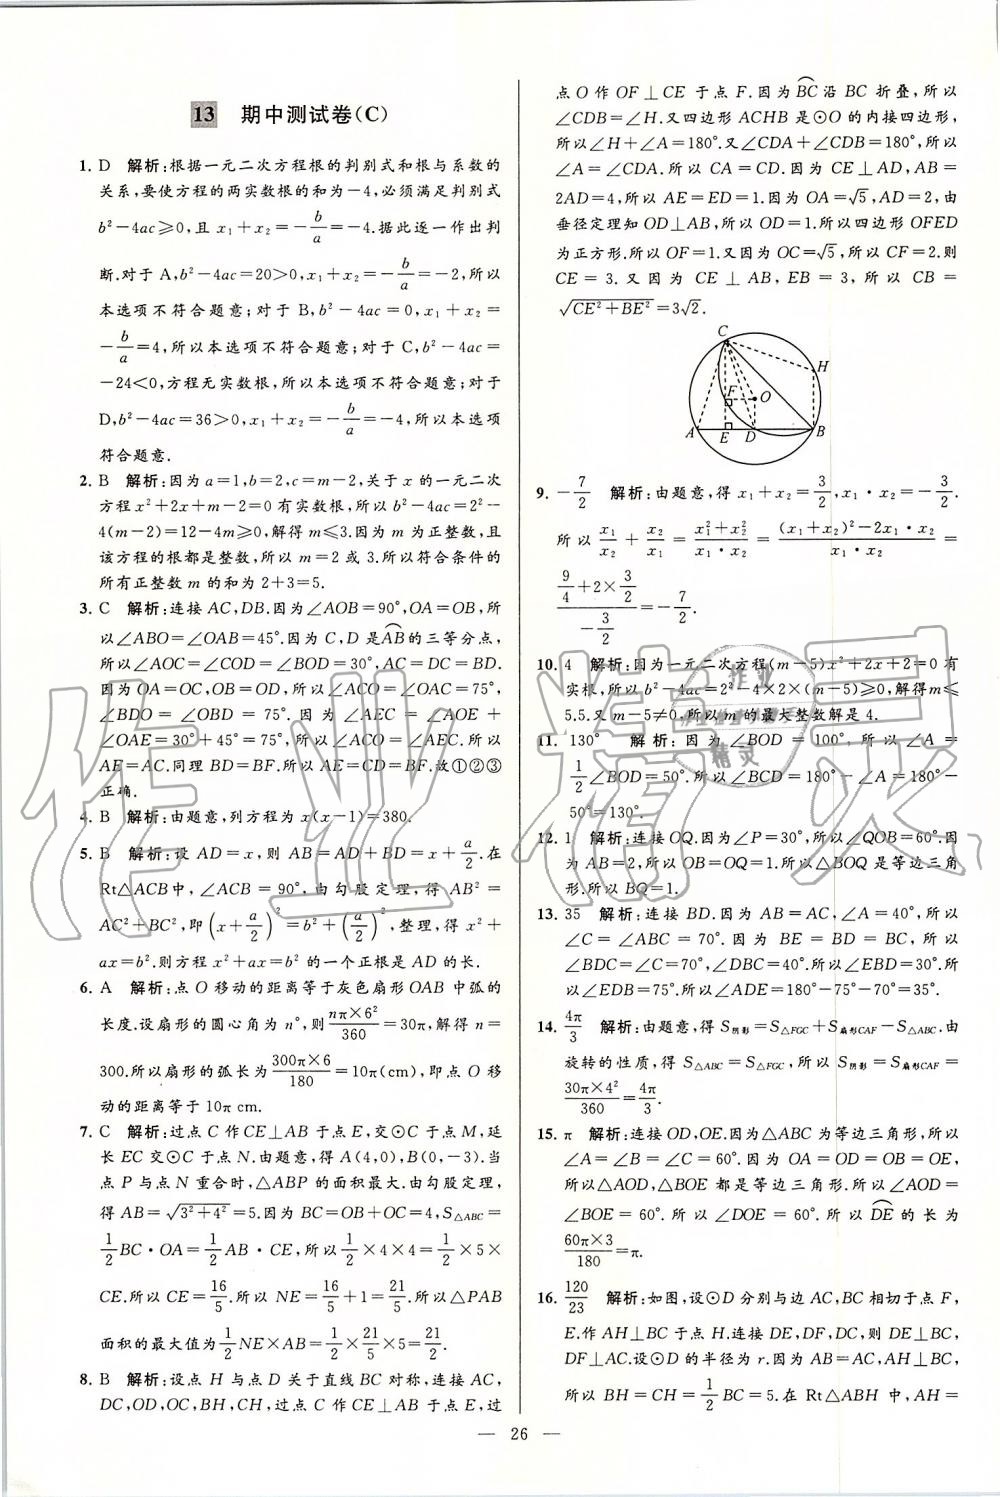 13 期中测试卷(C)
1. D 解析:根据一元二次方程根的判别式和根与系数的
关系,要使方程的两实数根的和为-4,必须满足判别式
b²-4ac≥0,且 x₁+x₂=-b/a=-4.据此逐一作出判
断.对于 A,b²-4ac=20>0,x₁+x₂=-b/a=-2,所以
本选项不符合题意;对于 B,b²-4ac=0,x₁+x₂=
-b/a=4,所以本选项不符合题意;对于 C,b²-4ac=
-24<0,方程无实数根,所以本选项不符合题意;对于
D,b²-4ac=36>0,x₁+x₂=-b/a=-4,所以本选项
符合题意.
2. B 解析:因为 a=1,b=2,c=m-2,关于 x 的一元二次
方程 x²+2x+m-2=0 有实数根,所以 b²-4ac=2²-
4(m-2)=12-4m≥0,解得 m≤3.因为 m 为正整数,且
该方程的根都是整数,所以 m=2 或 3.所以符合条件的
所有正整数 m 的和为 2+3=5.
3. C 解析:连接 AC,DB.因为∠AOB=90°,OA=OB,所
以∠ABO=∠OAB=45°.因为 C,D 是⌒AB的三等分点,
所以∠AOC=∠COD=∠BOD=30°,AC=DC=BD.
因为 OA=OC,OB=OD,所以∠ACO=∠OAC=75°,
∠BDO=∠OBD=75°.因为∠AEC=∠AOE+
∠OAE=30°+45°=75°,所以∠ACO=∠AEC.所以
AE=AC.同理 BD=BF.所以 AE=CD=BF.故①②③
正确.
4. B 解析:由题意,列方程为 x(x-1)=380.
5. B 解析:设 AD=x,则 AB=AD+BD=x+a/2.在
Rt△ACB中,∠ACB=90°,由勾股定理,得 AB²=
AC²+BC²,即(x+a/2)²=b²+(a/2)²,整理,得 x²+
ax=b².则方程 x²+ax=b² 的一个正根是 AD 的长.
6. A 解析:点 O 移动的距离等于灰色扇形 OAB 中弧的
长度.设扇形的圆心角为 n°,则nπ×6²/360=30π,解得 n=
300.所以扇形的弧长为300π×6/180=10π(cm),即点 O 移
动的距离等于 10π cm.
7. C 解析:过点 C 作 CE⊥AB 于点 E,交⊙C 于点 M,延
长 EC 交⊙C 于点 N.由题意,得 A(4,0),B(0,-3).当
点 P 与点 N 重合时,△ABP 的面积最大.由勾股定理,
得 AB=√(3²+4²)=5.因为 BC=OB+OC=4,S△ABC=
1/2BC·OA=1/2AB·CE,所以1/2×4×4=1/2×5×
CE.所以 CE=16/5.所以 NE=16/5+1=21/5.所以△PAB
面积的最大值为1/2NE×AB=1/2×21/5×5=21/2.
8. B 解析:设点 H 与点 D 关于直线 BC 对称,连接 AC,
DC,OD,OC,BH,CH,过点 C 作 CE⊥AB 于点 E,过
点 O 作 OF⊥CE 于点 F.因为⌒BC沿 BC 折叠,所以
∠CDB=∠H.又四边形 ACHB 是⊙O 的内接四边形,
所以∠H+∠A=180°.又∠CDA+∠CDB=180°,所以
∠A=∠CDA.所以 CA=CD.因为 CE⊥AD,AB=
2AD=4,所以 AE=ED=1.因为 OA=√5,AD=2,由
垂径定理知 OD⊥AB,所以 OD=1.所以四边形 OFED
为正方形.所以 OF=1.又因为 OC=√5,所以 CF=2.则
CE=3.又因为 CE⊥AB,EB=3,所以 CB=
√(CE²+BE²)=3√2.
C
H
F
O
A
E
D
B
9. -7/2 解析:由题意,得 x₁+x₂=3/2,x₁·x₂=-3/2.
所以x₁/x₂+x₂/x₁=(x₁²+x₂²)/(x₁·x₂)=((x₁+x₂)²-2x₁·x₂)/(x₁·x₂)=
(9/4+2×3/2)/(-3/2)=-7/2.
10. 4 解析:因为一元二次方程(m-5)x²+2x+2=0 有
实根,所以 b²-4ac=2²-4×2×(m-5)≥0,解得m≤
5.5.又 m-5≠0,所以 m 的最大整数解是 4.
11. 130° 解析:因为∠BOD=100°,所以∠A=
1/2∠BOD=50°.所以∠BCD=180°-∠A=180°-
50°=130°.
12. 1 解析:连接 OQ.因为∠P=30°,所以∠QOB=60°.因
为 AB=2,所以 OB=OQ=1.所以△BOQ 是等边三角
形.所以 BQ=1.
13. 35 解析:连接 BD.因为 AB=AC,∠A=40°,所以
∠C=∠ABC=70°.因为 BE=BD=BC,所以
∠BDC=∠C=70°,∠BDC=40°.所以∠EBD=30°.
所以∠EDB=75°.所以∠ADE=180°-75°-70°=35°.
14. 4π/3 解析:由题意,得 S阴影=S△FGC+S扇形CAF-S△ABC.由
旋转的性质,得 S△ABC=S△FGC,所以 S阴影=S扇形CAF=
30π×4²/360=4π/3.
15. π 解析:连接 OD,OE.因为△ABC 为等边三角形,所以
∠A=∠B=∠C=60°.因为 OA=OD=OB=OE,
所以△AOD,△BOE 都是等边三角形.所以∠AOD=
∠BOE=60°.所以∠DOE=60°.所以⌒DE的长为
60π×3/180=π.
16. 120/23 解析:如图,设⊙D 分别与边 AC,BC 相切于点 F,
E.作 AH⊥BC 于点 H.连接 DE,DF,DC,则 DE⊥BC,
DF⊥AC.设⊙D 的半径为 r.因为 AB=AC,AH⊥BC,
所以 BH=CH=1/2BC=5.在 Rt△ABH 中,AH=
— 26 —
作业精灵
作业
精灵